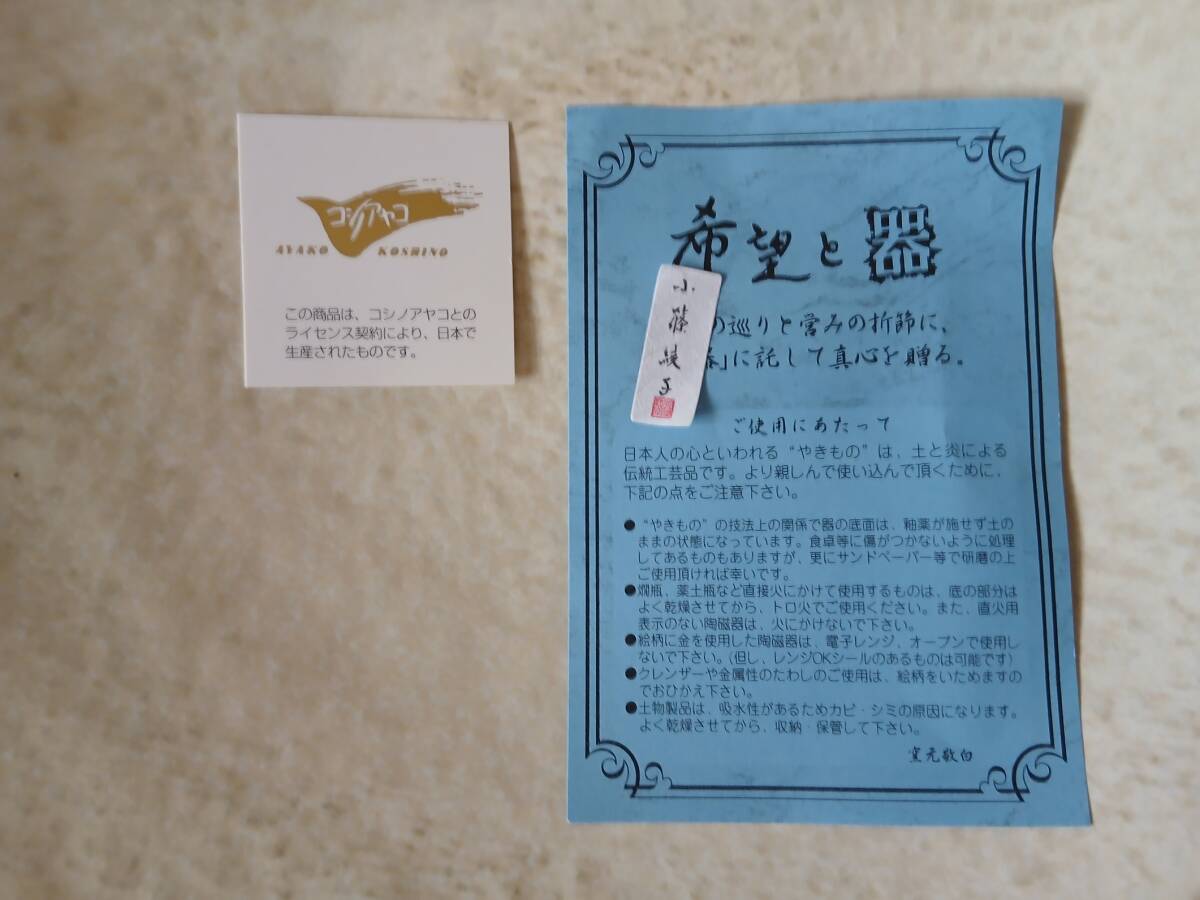 コシノアヤコ
AYAKO KOSHINO
この商品は、コシノアヤコとの
ライセンス契約により、日本で
生産されたものです。
希望と器
の巡りと営みの折節に、
」に託して真心を贈る。
小篠綾子
ご使用にあたって
日本人の心といわれる“やきもの”は、土と炎による
伝統工芸品です。より親しんで使い込んで頂くために、
下記の点をご注意下さい。
●“やきもの”の技法上の関係で器の底面は、釉薬が施せず土の
ままの状態になっています。食卓等に傷がつかないように処理
してあるものもありますが、更にサンドペーパー等で研磨の上
ご使用頂ければ幸いです。
●燗瓶、薬土瓶など直接火にかけて使用するものは、底の部分は
よく乾燥させてから、トロ火でご使用ください。また、直火用
表示のない陶磁器は、火にかけないで下さい。
●絵柄に金を使用した陶磁器は、電子レンジ、オーブンで使用し
ないで下さい。(但し、レンジOKシールのあるものは可能です)
●クレンザーや金属性のたわしのご使用は、絵柄をいためますの
でおひかえ下さい。
●土物製品は、吸水性があるためカビ・シミの原因になります。
よく乾燥させてから、収納・保管して下さい。
窯元敬白